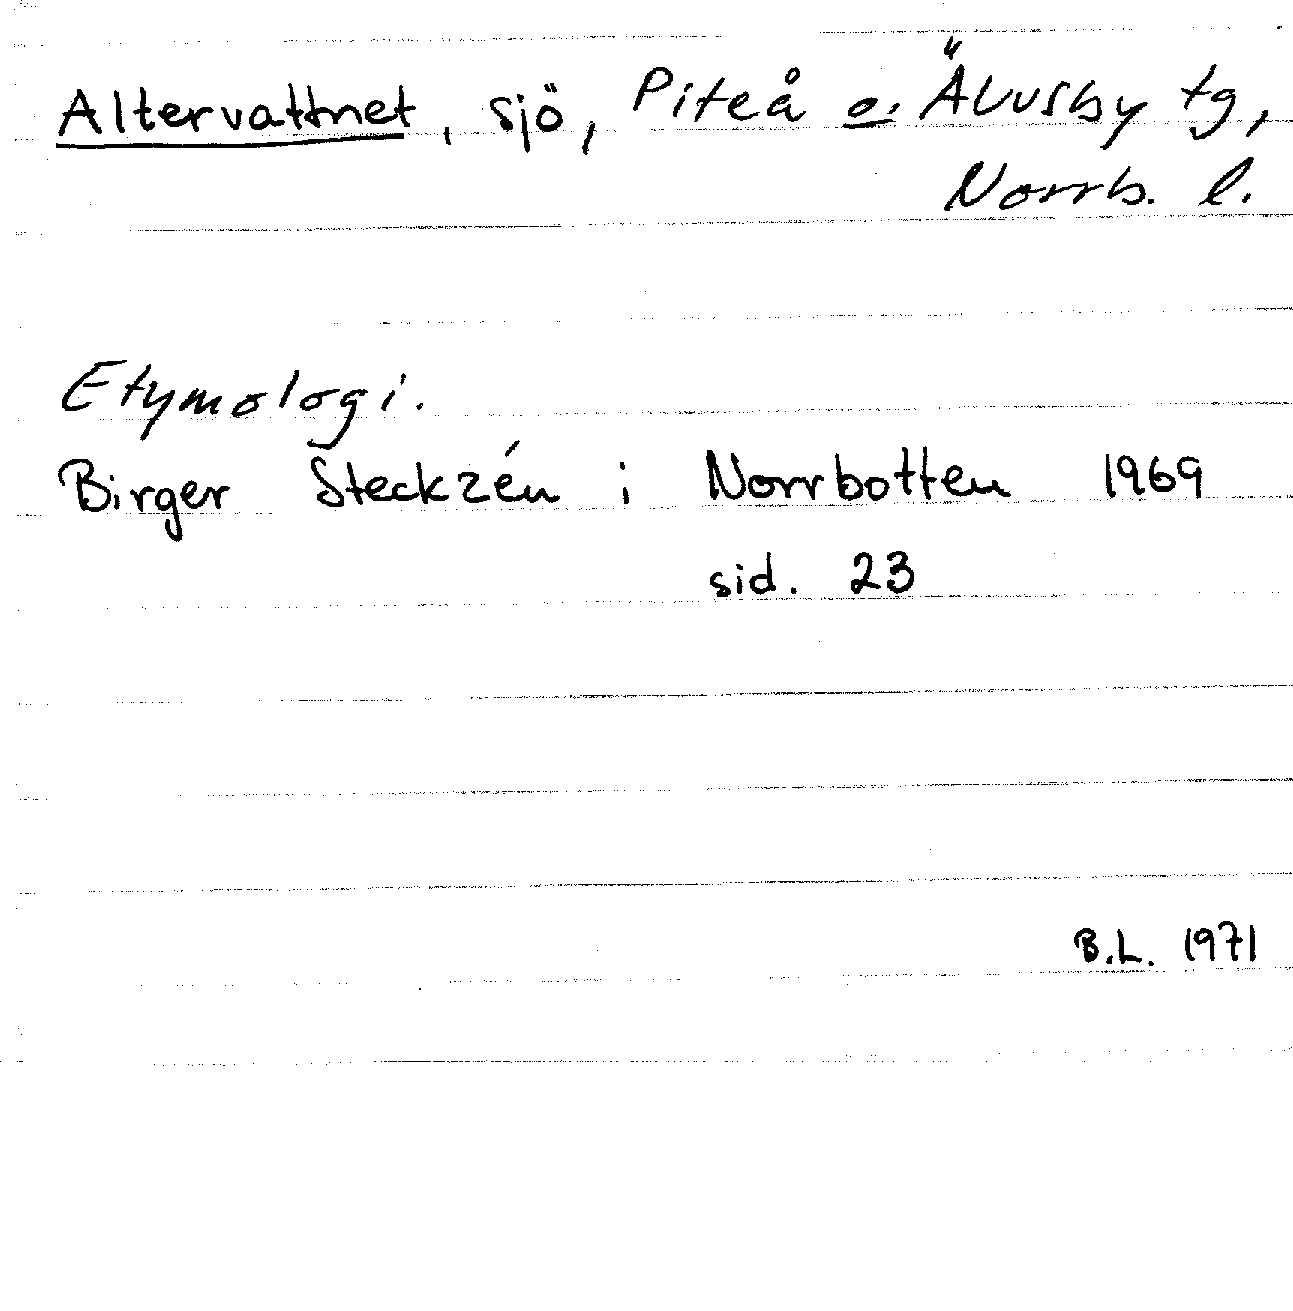 Altervattnet, sjö, Piteå o. Älvsby tg,
Norrb. l.
Etymologi.
Birger Steckzén i Norrbotten 1969
sid. 23
B.L. 1971